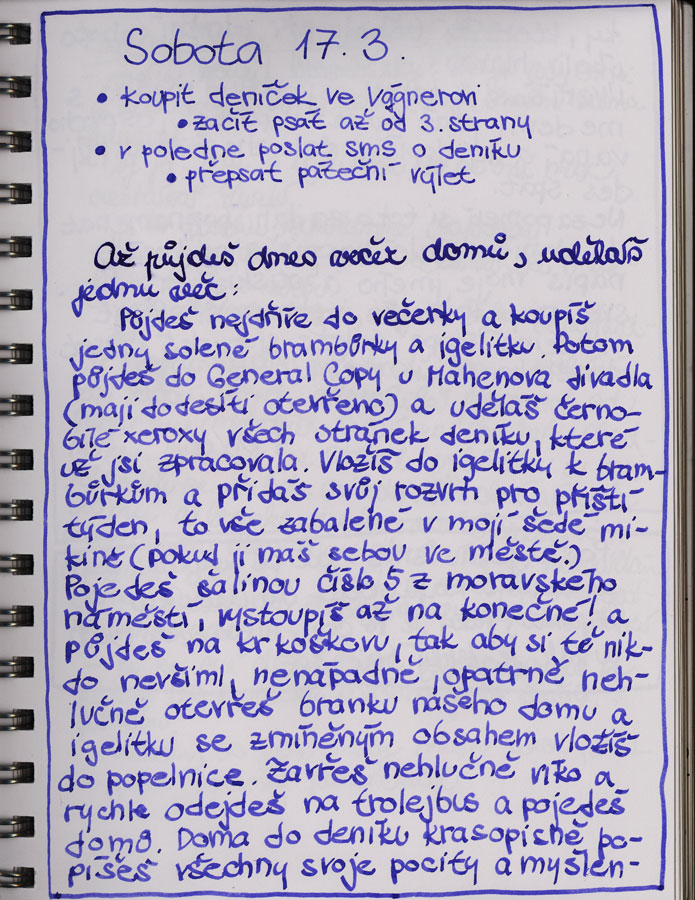 Sobota 17. 3.
• koupit deníček ve Vágnerovi
• začít psát až od 3. strany
• v poledne poslat sms o deníku
• přepsat páteční výlet
Až půjdeš dnes večer domů, uděláš
jednu věc:
Půjdeš nejdříve do večerky a koupíš
jedny solené brambůrky a igelitku. Potom
půjdeš do General Copy u Mahenova divadla
(mají do desíti otevřeno) a uděláš černo-
bílé xeroxy všech stránek deníku, které
už jsi zpracovala. Vložíš do igelitky k bram-
bůrkům a přidáš svůj rozvrh pro příští
týden, to vše zabalené v mojí šedé mi-
kině (pokud ji máš sebou ve městě.)
Pojedeš šalinou číslo 5 z moravského
náměstí, vystoupíš až na konečné! a
půjdeš na krkoškovu, tak aby si tě nik-
do nevšiml, nenápadně, opatrně neh-
lučně otevřeš branku našeho domu a
igelitku se zmíněným obsahem vložíš
do popelnice. Zavřeš nehlučně víko a
rychle odejdeš na trolejbus a pojedeš
domů. Doma do deníku krasopisně po-
píšeš všechny svoje pocity a myšlen-